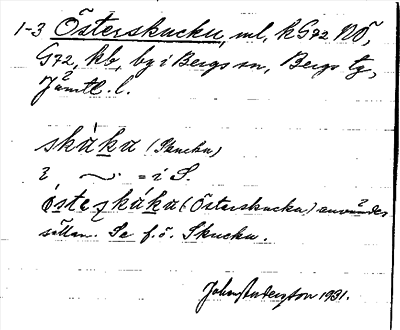 1-3 Österskucku, ml, kG72 NÖ,
G72, kb, by i Bergs sn, Bergs tg,
Jämtl. l.
skáka (Skucku)
i ~ = i S.
ósteskáka (Österskucku) användes
sällan. Se f.ö. Skucku.
John Anderson 1931.